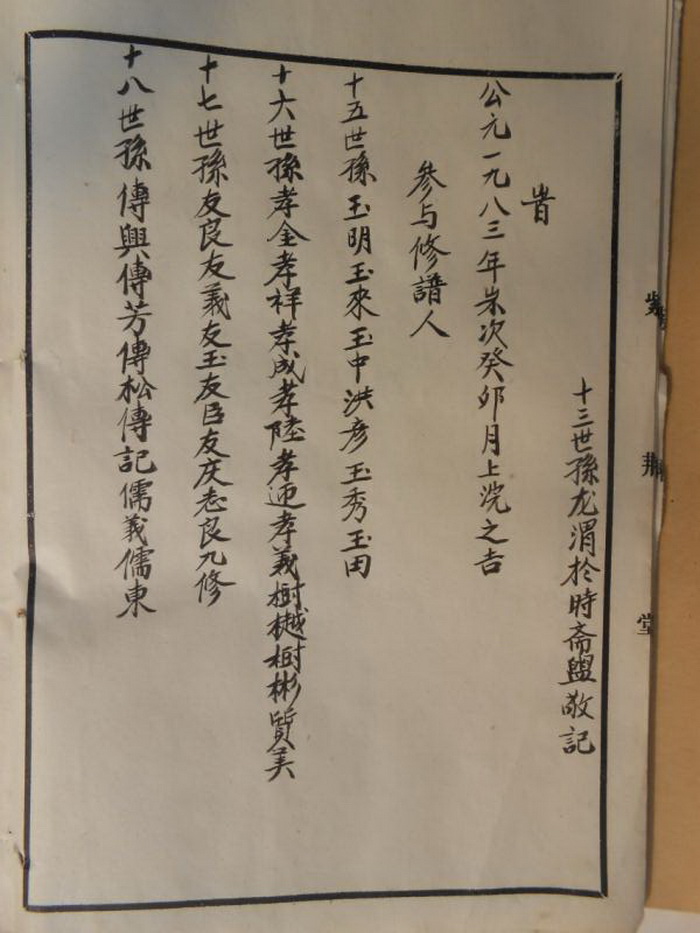 紫荆堂
十三世孫龙渭於時斋盥敬記
旹
公元一九八三年岁次癸卯月上浣之吉
参与修譜人
十五世孫玉明玉來玉中洪彦玉秀玉田
十六世孫孝金孝祥孝成孝陸孝迎孝義樹樾樹彬質美
十七世孫友良友義友玉友臣友庆志良九修
十八世孫傳興傳芳傳松傳記儒義儒東